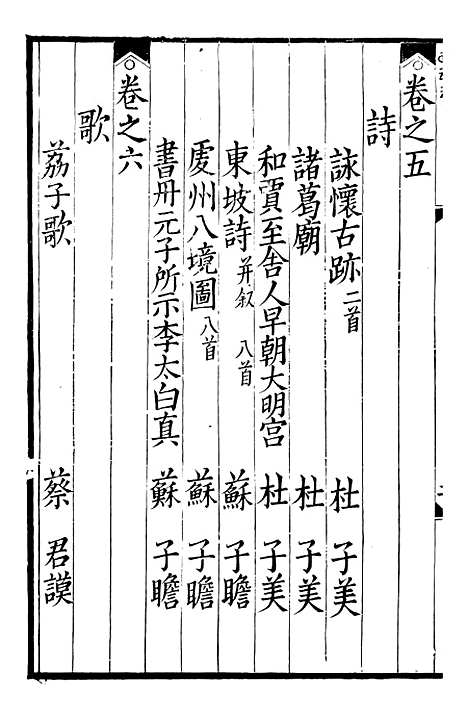 卷之五
詩
詠懷古跡 二首 杜子美
諸葛廟 杜子美
和賈至舍人早朝大明宮 杜子美
東坡詩 并叙 八首 蘇子瞻
虔州八境圖 八首 蘇子瞻
書丹元子所示李太白真 蘇子瞻
卷之六
歌
荔子歌 蔡君謨